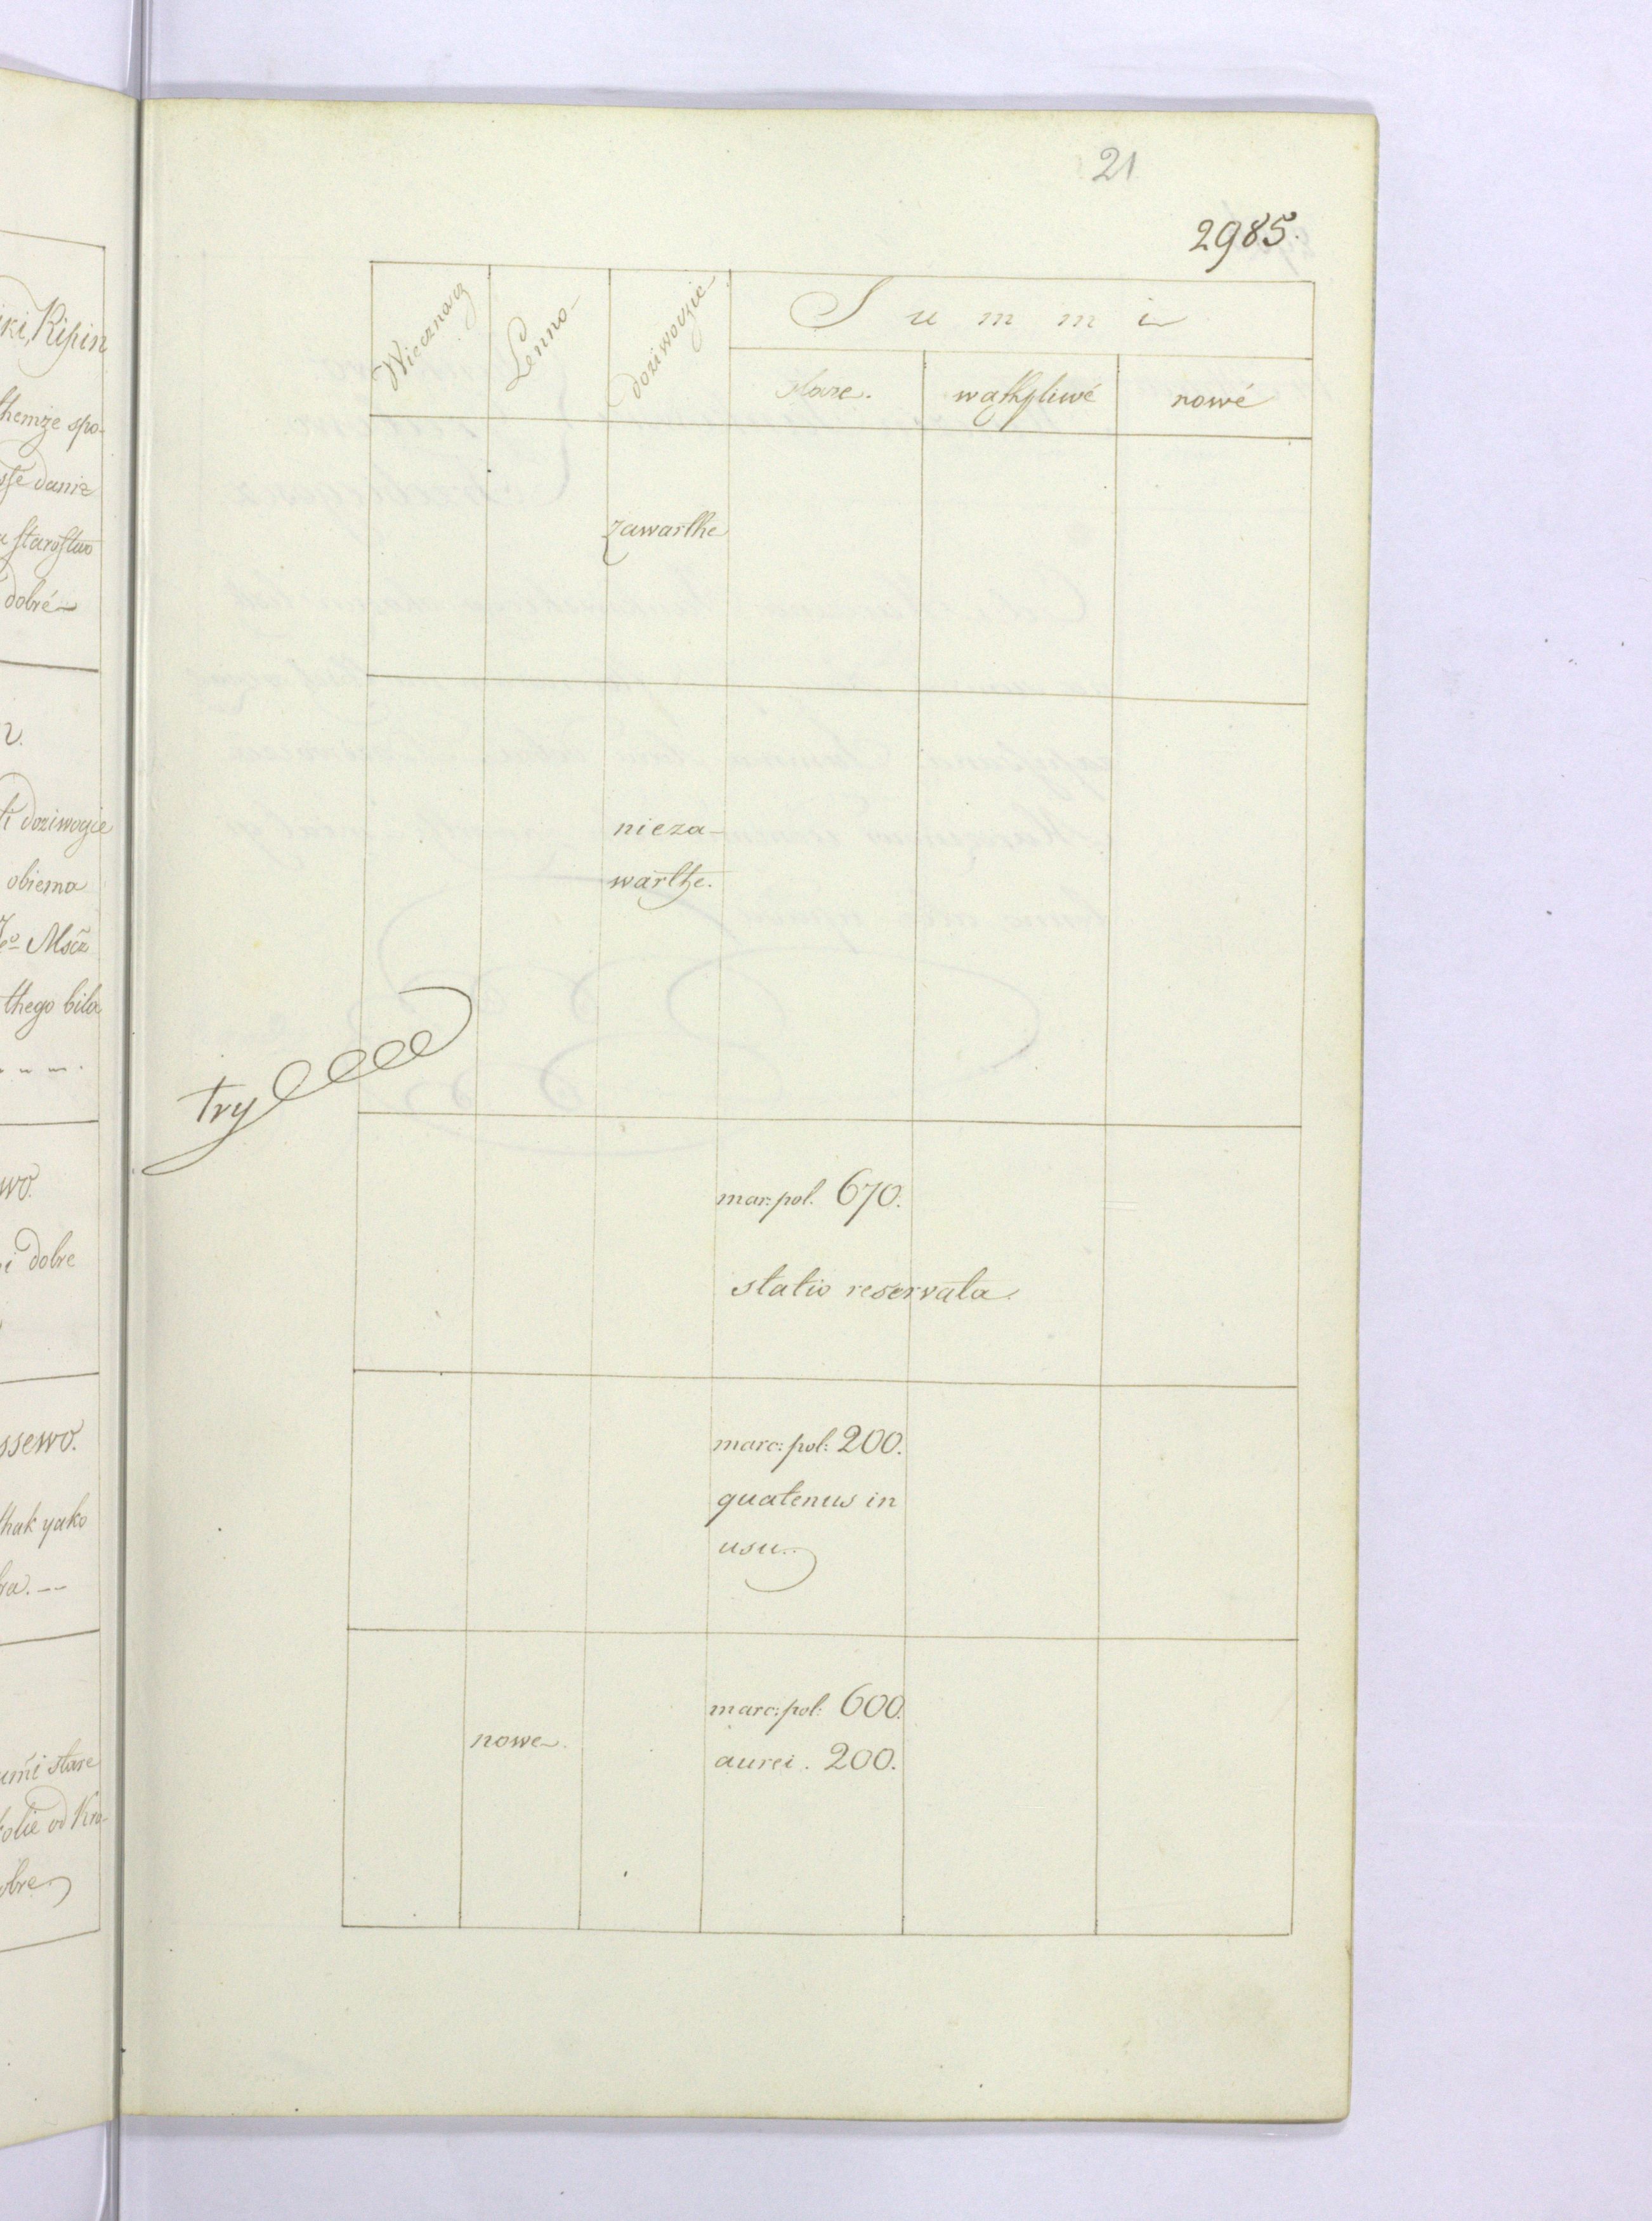 21
2985.
Wieczną
Lenno
doziwozie
Summi
stare.
wathpliwé
nowé
zawarthe
nieza-
warthe.
try
mar: pol. 670.
statio reservata.
marc: pol: 200.
quatenus in
usu.
nowe
marc: pol: 600.
aurei. 200.
Ripin
themże spo-
danie
starostwo
dobré
doziwozie
obiema
thego bila
wo.
i dobre
ssewo.
thak yako
stare
od Kro-